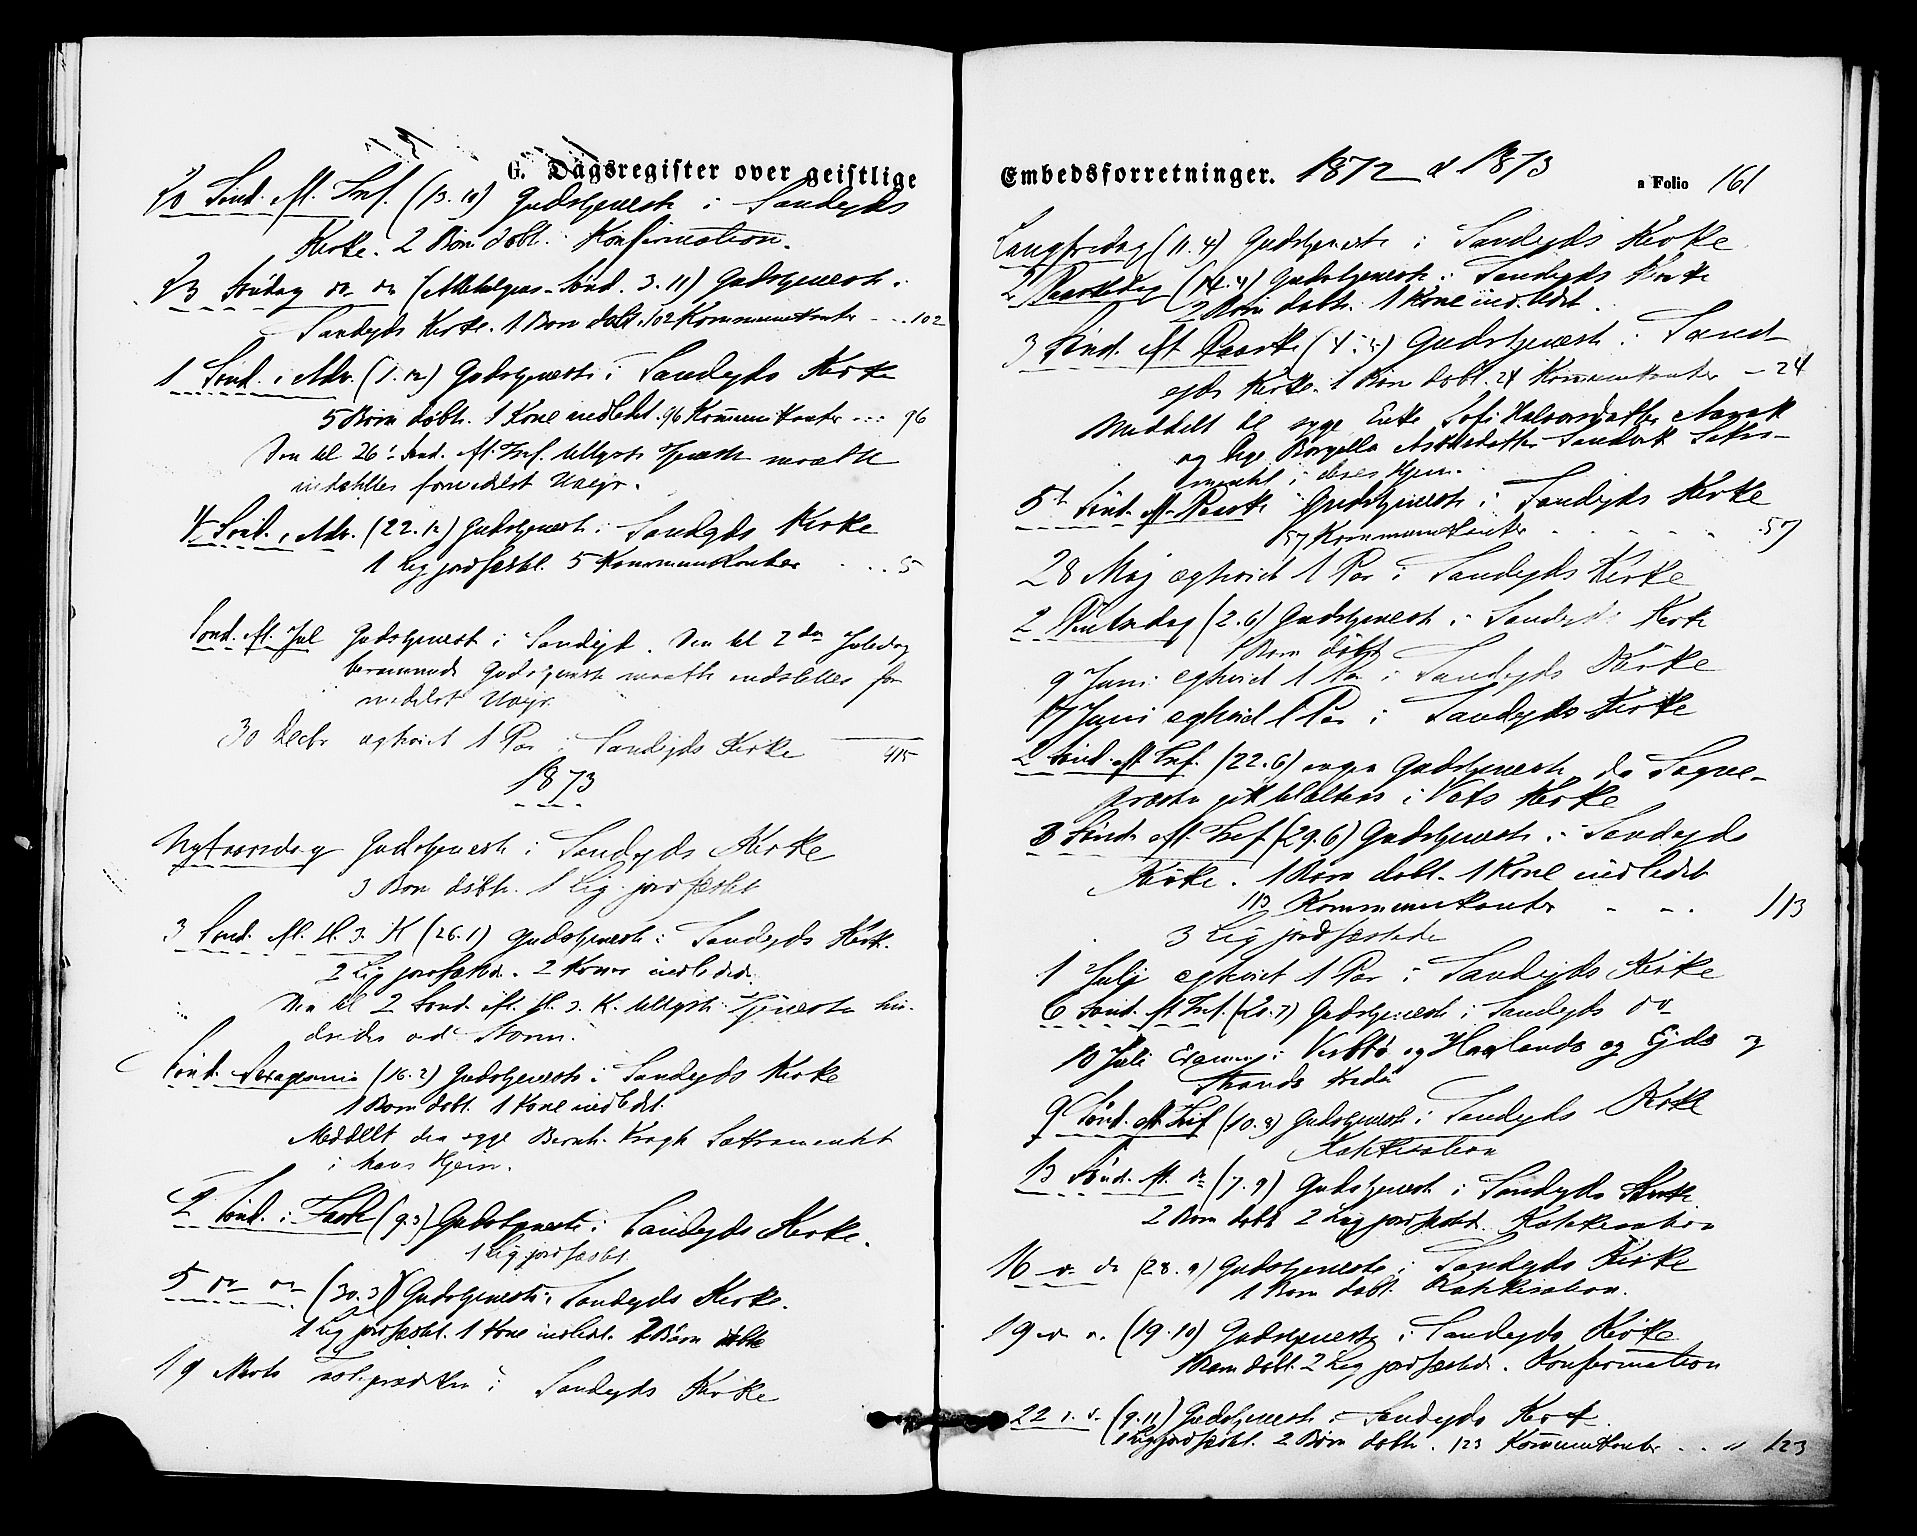 G. Dagsregister over geistlige
20 Sönd. eft. Tref. (13.10) Gudstjeneste i Sandejds
Kirke. 2 Börn döbt. Konfirmation.
23 Söndag do do (Allehelgens-Sönd. 3.11) Gudstjeneste i
Sandejds Kirke. 1 Barn döbt. 102 Kommunikanter - - . 102
1 Sönd. i Adv. (1.12) Gudstjeneste i Sandejds Kirke
5 Börn döbte. 1 Kone indledet. 96 Kommunikanter - - - 96
Den til 26. Sönd. eft. Tref. tillyste Tjeneste maatte
indstilles formedelst Uvejr.
4 Sönd. i Adv. (22.12) Gudstjeneste i Sandejds Kirke
1 Lig jordfæstet. 5 Kommunikanter . . . 5
Sönd. eft. Jul Gudstjeneste i Sandejd. Den til 2den Juledag
berammede Gudstjeneste maatte indstilles for
medelst Uvejr.
30 Decbr egteviet 1 Par i Sandejds Kirke 415
1873
Nytaarsdag Gudstjeneste i Sandejds Kirke
3 Börn döbte. 1 Lig jordfæstet
3 Sönd. eft. H. 3. K (26.1) Gudstjeneste i Sandejds Kirke.
2 Lig jordfæstede. 2 Koner indledede.
Den til 2 Sönd. eft. H. 3. K. tillyste Tjeneste hin-
dredes ved Storm.
Sönd. Sexagesima (16.2) Gudstjeneste i Sandejds Kirke
1 Barn döbt. 1 Kone indledet.
Meddelt den syge Bernh. Kragh Sakramentet
i hans Hjem.
2 Sönd. i Faste (9.3) Gudstjeneste i Sandejds Kirke.
1 Lig jordfæstet
5 do do (30.3) Gudstjeneste i Sandejds Kirke.
1 Lig jordfæstet. 1 Kone indledet. 2 Börn döbte
19 Marts i Sandejds Kirke
Embedsforretninger. 1872 & 1873 a Folio 161
Langfredag (11.4) Gudstjeneste i Sandejds Kirke
2 Paaskedag (14.4) Gudstjeneste i Sandejds Kirke
2 Börn döbte. 1 Kone indledet.
3 Sönd. eft Paaske (4.5) Gudstjeneste i Sand
ejds Kirke. 1 Barn döbt. 24 Kommunikanter - 24
Meddelt de syge Enke Sofi Halvorsdatter
og Pige Sandvik Sakra-
mentet i deres Hjem.
5te Sönd. eft. Paaske Gudstjeneste i Sandejds Kirke
57 Kommunikanter - - - - - 57
28 Maj egteviet 1 Par i Sandejds Kirke
2 Pintsedag (2.6) Gudstjeneste i Sandejds Kirke
1 Barn döbt
9 Juni egteviet 1 Par i Sandejds Kirke
17 Juni egteviet 1 Par i Sandejds Kirke
2 Sönd. eft. Tref. (22.6) ingen Gudstjeneste da Sogne-
præsten gik til Alters i Vats Kirke
3 Sönd. eft. Tref (29.6) Gudstjeneste i Sandejds
Kirke. 1 Barn döbt. 1 Kone indledet
113 Kommunikanter - - . 113
3 Lig jordfæstede
1 Julj egteviet 1 Par i Sandejds Kirke
6 Sönd. eft Tref. (20.7) Gudstjeneste i Sandejds do
Juli Examen i og Haalands og Ejds og
Strands Kredse
9 Sönd. eft. Tref (10.8) Gudstjeneste i Sandejds Kirke
Katekisation
13 Sönd. eft. do (7.9) Gudstjeneste i Sandejds Kirke
2 Börn döbte 2 Lig jordfæstet. Katekisation
16 do do (28.9) Gudstjeneste i Sandejds Kirke
1 Barn döbt. Katekisation.
19 do do (19.10) Gudstjeneste i Sandejds Kirke
1 Barn döbt. 2 Lig jordfæstede. Konfirmation
22 d. d. (9.11) Gudstjeneste i Sandejds Kirke
1 Lig jordfæstet. 2 Börn döbte. 123 Kommunikanter . . " 123